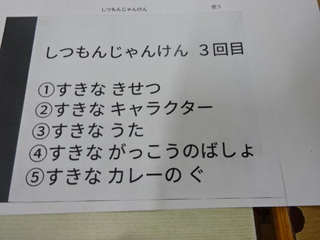 しつもんじゃんけん
しつもんじゃんけん ３回目
①すきな きせつ
②すきな キャラクター
③すきな うた
④すきな がっこうのばしょ
⑤すきな カレーの ぐ